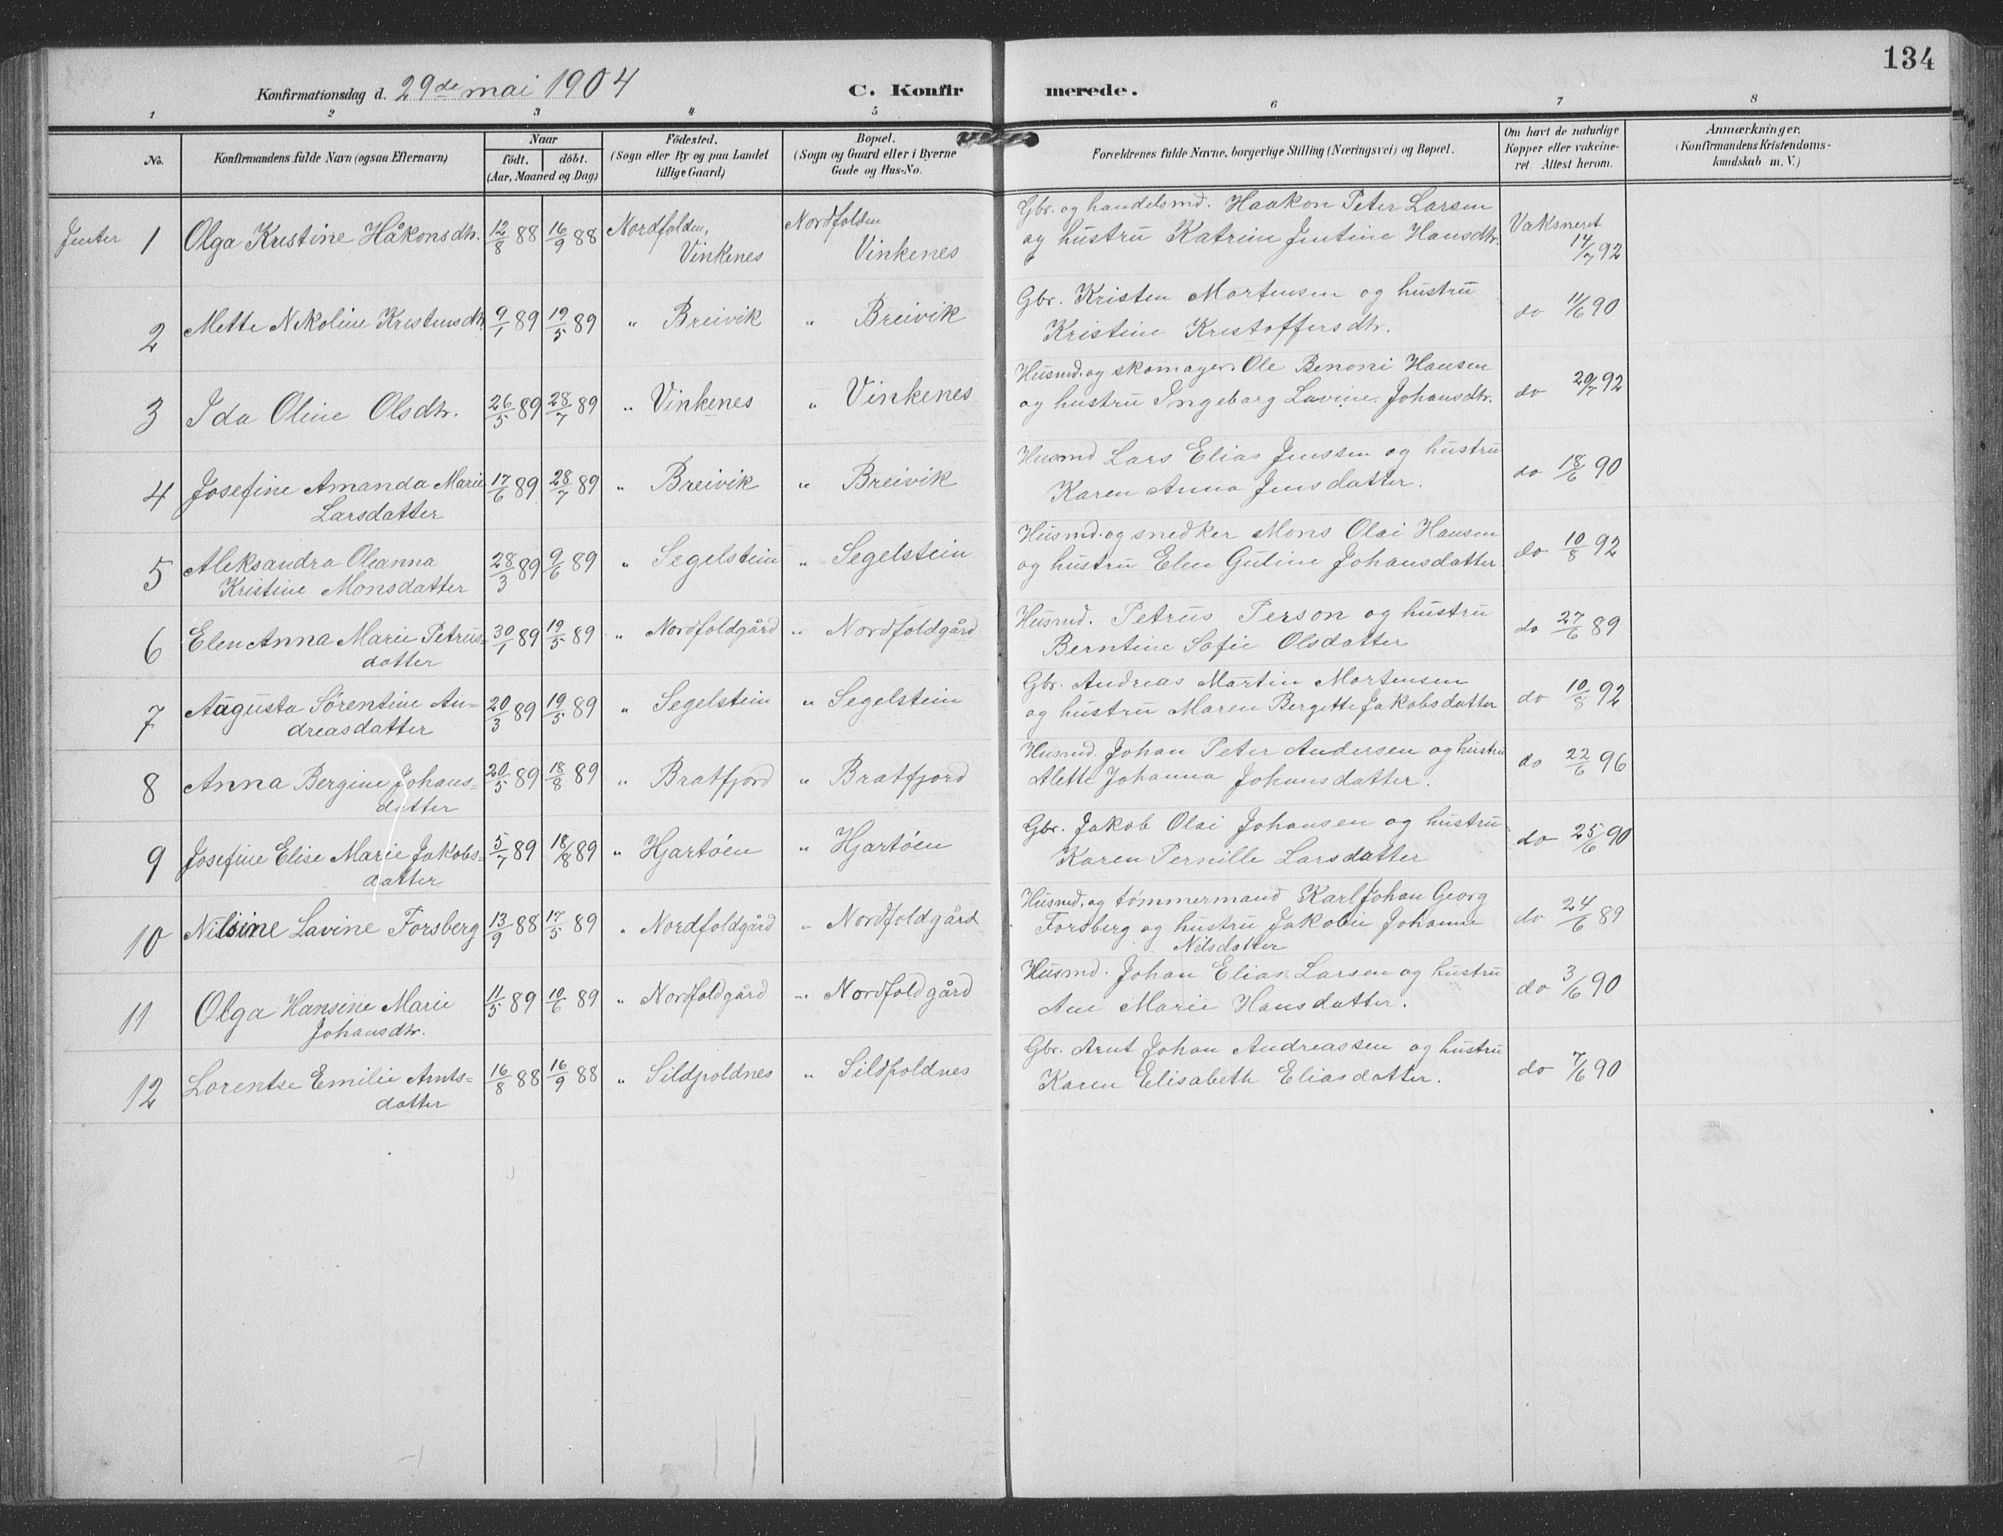 134
Konfirmationsdag d. 29de mai 1904
C. Konfir merede.
1 2 3 4 5 6 7 8
No.
Konfirmandens fulde Navn (ogsaa Efternavn)
Naar
födt. döbt.
(Aar, Maaned og Dag)
Födested.
(Sogn eller By og paa Landet
tillige Gaard)
Bopæl.
(Sogn og Gaard eller i Byerne
Gade og Hus-No.
Forældrenes fulde Navne, borgerlige Stilling (Næringsvei) og Bopæl.
Om havt de naturlige
Kopper eller vakcine-
ret. Attest herom.
Anmærkninger.
(Konfirmandens Kristendoms-
kundskab m. V.)
Jenter 1 Olga Kristine Håkonsdtr. 12/8 88 16/9 88 Nordfolden, Vinkenes Nordfolden Vinkenes Gbr. og handelsmd. Haakon Peter Larsen
og hustru Katrine Jentine Hansdtr. Vaksineret 14/7 92
2 Mette Nikoline Kristensdtr 9/1 89 19/5 89 " Breivik " Breivik Gbr. Kristen Mortensen og hustru
Kristine Kristoffersdtr. do 11/6 90
3 Ida Oline Olsdtr. 26/5 89 28/7 89 " Vinkenes " Vinkenes Husmd. og skomager Ole Benoni Hansen
og hustru Ingeborg Lavine Johansdtr. do 29/7 92
4 Josefine Amanda Marie 17/6 89 28/7 89 " Breivik " Breivik Husmd Lars Elias Jenssen og hustru
Larsdatter Karen Anna Jensdatter. do 18/6 90
5 Aleksandra Oleanna 28/3 89 9/6 89 " Segelstein " Segelstein Husmd. og snedker Mons Olai Hansen
Kristine Monsdatter og hustru Elen Gutine Johansdatter do 10/8 92
6 Elen Anna Marie Petrus- 30/1 89 19/5 89 " Nordfoldgård " Nordfoldgård Husmd. Petrus Person og hustru
datter Berntine Sofie Olsdatter do 27/6 89
7 Augusta Sørentine An- 20/3 89 19/5 89 " Segelstein " Segelstein Gbr. Andreas Martin Mortensen
dreasdatter og hustru Maren Bergitte Jakobsdatter do 10/8 92
8 Anna Bergine Johans- 20/5 89 18/8 89 " Bratfjord " Bratfjord Husmd. Johan Peter Andersen og hustru
datter Alette Johanna Johansdatter. do 22/6 96
9 Josefine Elise Marie Jakobs- 5/7 89 18/8 89 " Hjartöen " Hjartöen Gbr. Jakob Olai Johansen og hustru
datter Karen Pernille Larsdatter do 25/6 90
10 Nilsine Lavine Forsberg 13/9 88 17/5 89 " Nordfoldgård " Nordfoldgård Husmd. og tømmermand Karl Johan Georg
Forsberg og hustru Jakobie Johanne
Nilsdatter do 24/6 89
11 Olga Hansine Marie 11/5 89 10/6 89 " Nordfoldgård " Nordfoldgård Husmd. Johan Elias Larsen og hustru
Johansdtr. Ane Marie Hansdatter. do 3/6 90
12 Lorentse Emilie Arnts- 16/8 88 16/9 88 " Sildpoldnes " Sildpoldnes Gbr. Arnt Johan Andreassen og hustru
datter Karen Elisabeth Eliasdatter. do 7/6 90